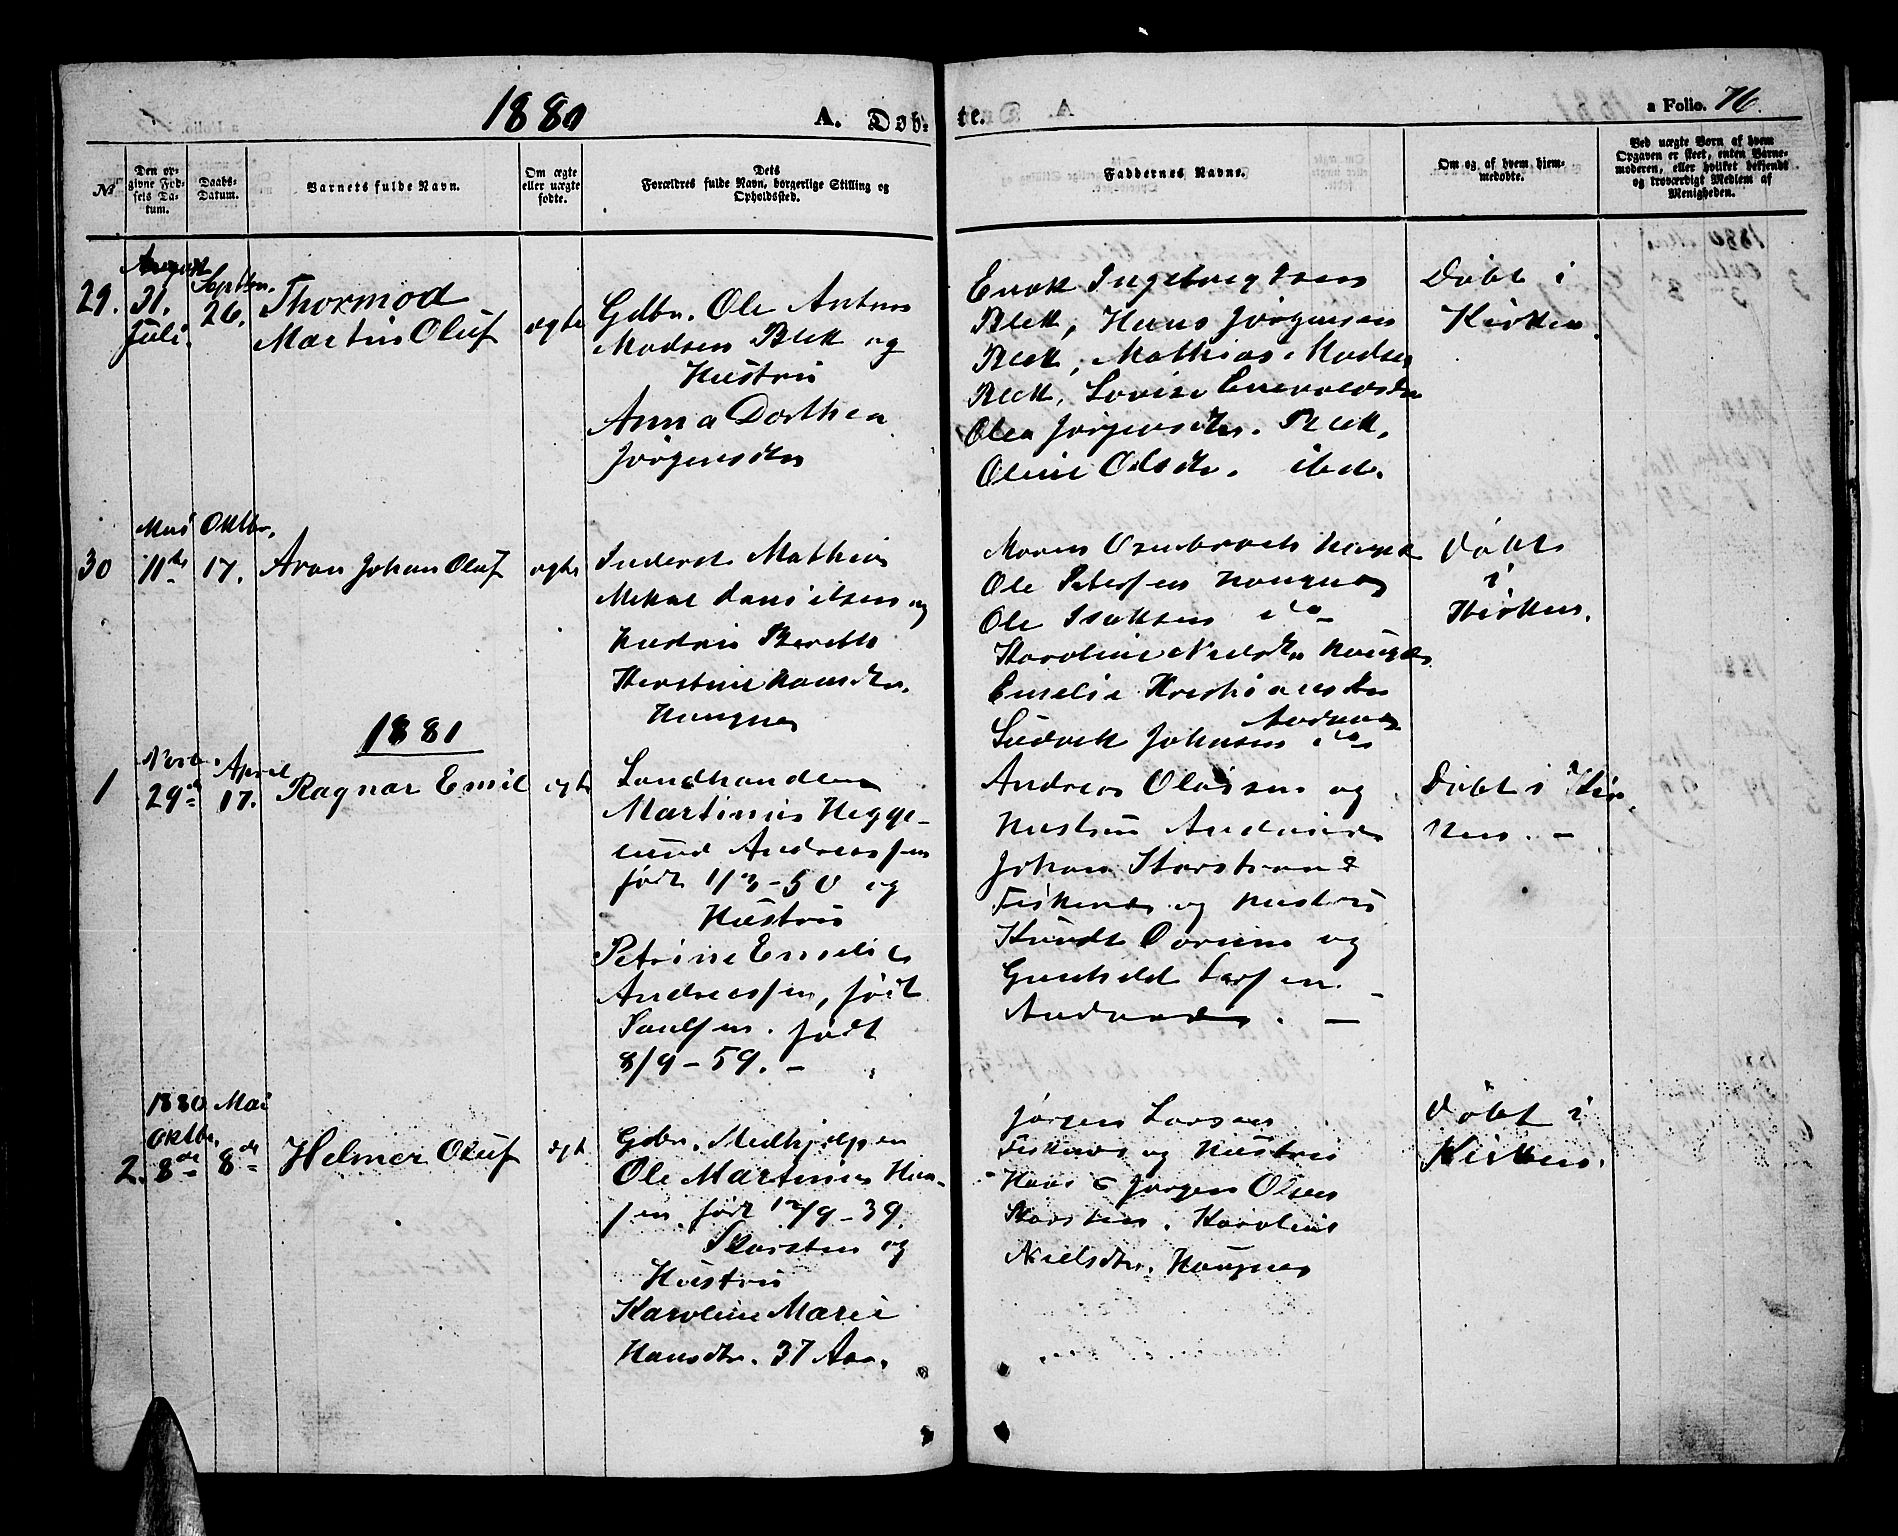 1880
A. Døb-
te.
a Folio. 76.
No
Den opgivne Fødsels Datum.
Daabs-Datum.
Barnets fulde Navn.
Om ægte eller uægte fødte.
Dets Forældres fulde Navn, borgerlige Stilling og Opholdssted.
Faddernes Navne.
Om og af hvem hjemmedøbte.
Ved uægte Børn af hvem Opgaven er skeet, enten Barnemoderen, eller hvilket bekjendt og troværdigt Medlem af Menigheden.
29.
August
31.
Juli.
Septbr.
26.
Thormod
Martin Oluf
ægte
Gdbr. Ole Anton
Madsen Blek og
Hustru
Anna Dorthea
Jørgensdtr
Enok Ingebrigtsen
Blek, Hans Jørgensen
Blek, Mathias Madsen
Blek, Lovise
Olea Jørgensdtr. Blek,
Oline Olsdtr. ibd.
Døbt i
Kirken.
30
Mai
11te
Oktbr.
17.
Aron Johan Oluf
ægte
Inderst Mathias
Mekal Danielsen og
Hustru Berethe
Kerstine Hansdtr.
Haugnes
Ole Petersen Haugnes
Ole Isaksen do
Karoline Nielsdtr Haugnes
Emelie Kristiansdtr
Andenes
Ludvik Johnsen do
Døbt
i
Kirken.
1881
1
Novbr.
29de
April
17.
Ragnar Emil
ægte
Landhandler
Martinus Hegge-
lund Andreassen
født 1/3-50 og
Hustru
Petrine Emelie
Andreassen, født
Paulsen. født
8/9-59. -
Andreas Olaisen og
Hustru Andenes
Johan Storstrand
Fiskenes og Hustru
Knudt Dorum og
Gunhild Larsen. -
Andenes. -
Døbt i Kir-
ken. -
2.
1880
Oktbr.
8de
Mai
8de
Helmer Oluf
ægt
Gdbr. Medhjelper
Ole Martinus Han-
sen. født 12/9-39.
Skarsten og
Hustru
Karoline Marie
Hansdtr. 37 Aar.
Jørgen Larsen
Fiskenes og Hustru
Jørgen Olsen
Skarsten. Karoline
Nielsdtr. Haugnes
Døbt i
Kirken.